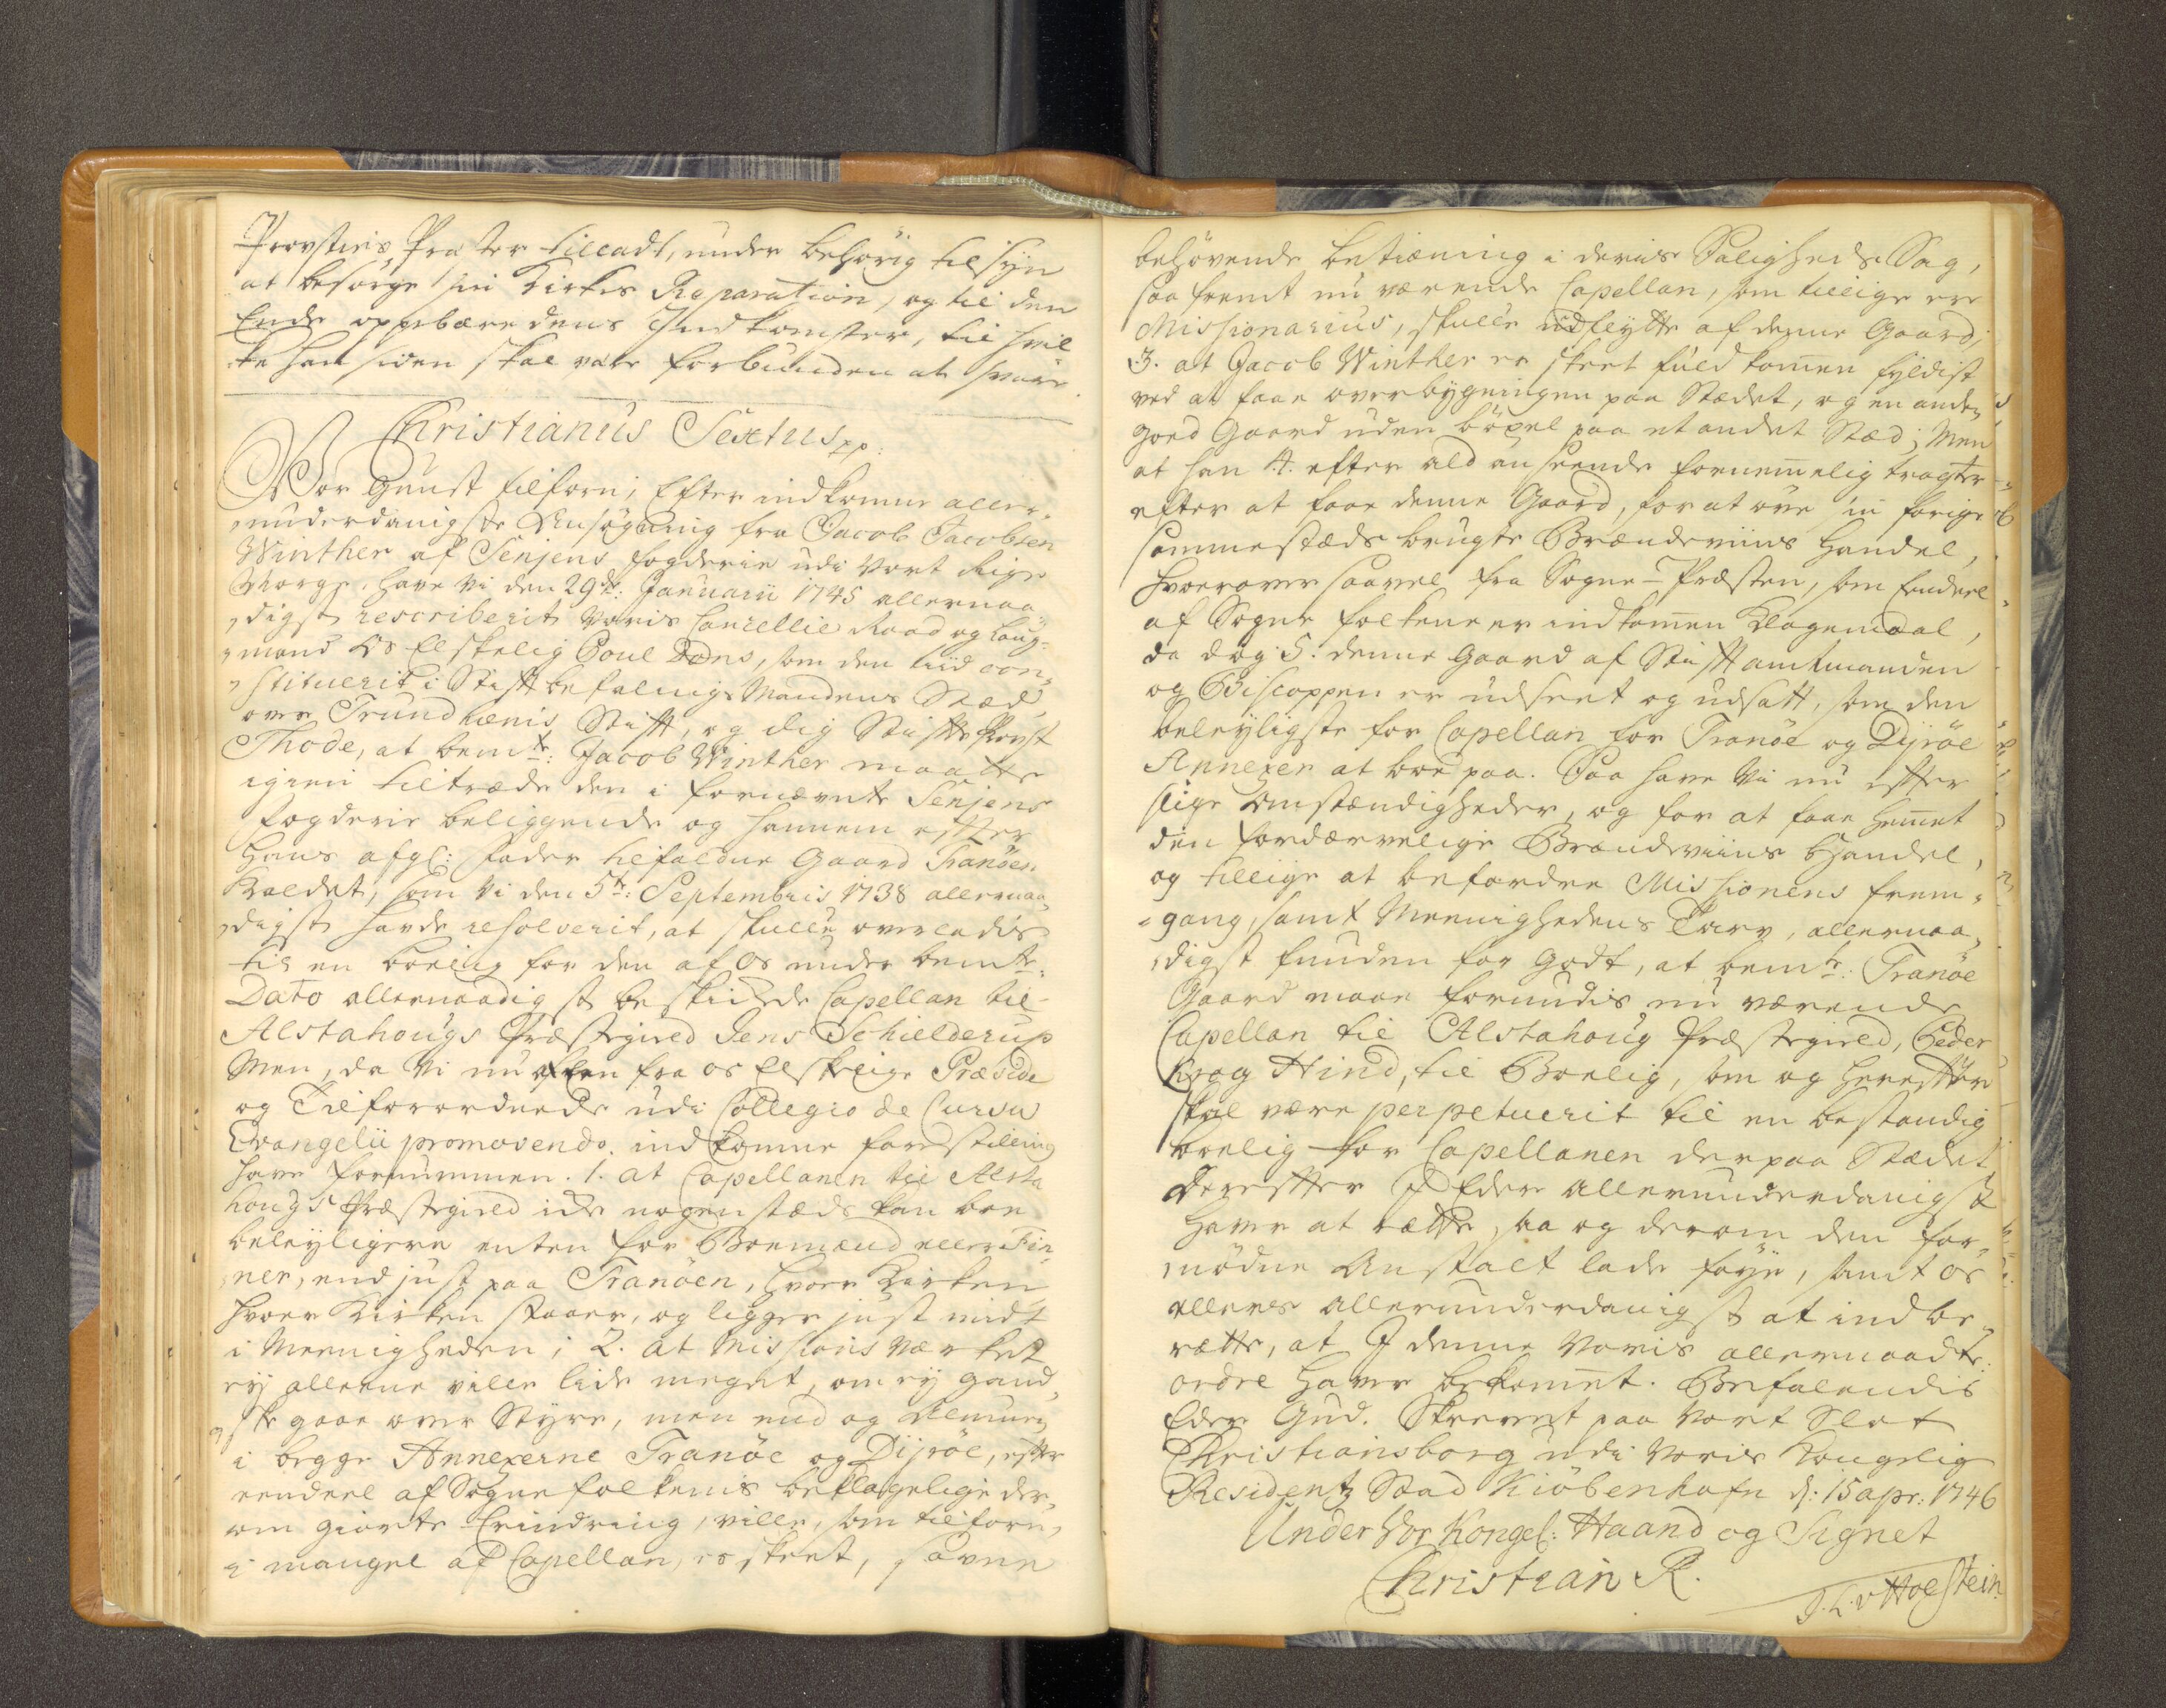 Provstens Præster tilladt, under behörig tilsÿn
at besörge sin Kirkes Reparation, og til den
Ende oppebære dens Indkomster, til hvil
ke han siden skal være forbunden at svare.
Christianus Sextus pp:
Vor Gunst tilforn; Efter indkomne aller-
underdanigste Ansögning fra Jacob Jacobsen
Winther af Senjens fogderie udi Vort Rige
Norge, have Vi den 29de: Januarii 1745 allernaa
digst rescriberit Voris Cancellie Raad og Laug-
mand Os Elskelig Poul Dons, som den tiid con-
stituerit i Stifftbefalings Mandens Stæd
over Trundhiems Stifft, og dig Stiffts Provst
Thode, at bemte: Jacob Winther maatte
igien tiltræde den i fornævnte Senjens
fogderie beliggende og hannem efter
Hans afgl: fader tilfaldne Gaard Tranöen
Kaldet, som Vi den 5te: Septembris 1738 allernaa-
digst havde resolverit, at skulle overladis
til en boelig for den af Os under bemte:
Dato allernaadigst beskickede Capellan til
Alstahougs Præstegield Jens Schielderup
Men, da Vi nu af den fra os Elskelige Præside
og Tilforordnede udi Collegio de Cursu
Evangelii promovendo indkomne forestilling
have fornummen. 1. at Capellanen til Alsta
hougs Præstegield icke nogenstæds kan boe
beleÿligere enten for Boemænd eller Fin
ner, end just paa Tranöen, hvor Kirken
hvor Kirken staaer, og ligger just midt
i Meenigheden; 2. at Missions Værket
eÿ alleene ville lide meget, om eÿ gand
ske gaae over Styre, men end og Almuen
i begge Annexerne Tranöe og Dÿröe, efter
eendeel af Sognefolkenis beklagelige der-
om giorte Erindring, ville, som tilforn,
i mangel af Capellan, er skeet, savne
behövende betiening i deris Saligheds Sag,
saafremt nu værende Capellan, som tillige er
Missionarius, skulle udflÿtte af denne Gaard;
3. at Jacob Winther er skeet fuldkommen fyldist
ved at faae overbygningen paa Stædet, og en anden
goed Gaard uden böxel paa et andet Stæd; Men
at han 4. efter ald anseende fornemmelig tragter
efter at faae denne Gaard, for at öve sin forige
sammestæds brugte Brændeviins Handel,
hvorover saavel fra Sogne-Præsten, som Endeel
af Sogne folkene er indkommen Klagemaal,
da dog 5. denne Gaard af Stifftamtmanden
og Biscoppen er udseet og udsatt, som den
beleÿligste for Capellan for Tranöe og Dÿröe
Annexer at boe paa. Saa have Vi nu efter
slige Omstændigheder, og for at faae hemmet
den fordærvelige Brændeviins Handel,
og tillige at befordre Missionens frem-
gang, samt Meenighedens Tarv, allernaa-
digst funden for Godt, at bemte: Tranöe
Gaard maae forundis nu værende
Capellan til Alstahoug Præstegield, Peder
Krag Hind, til Boelig, som og herefter
skal være perpetuerit til en bestandig
boelig for Capellanen derpaa Stædet
Derefter I Eder allerunderdanigst
Have at rætte, saa og derom den for-
nödne Anstalt lade föye, samt os
ellers allerunderdanigst at indbe-
rætte, at I denne Voris allernaadte:
ordre haver bekommet. Befalendis
Eder Gud. Skrevet paa Vort Slot
Christiansborg udi Voris Kongelig
Residentz Stad Kiöbenhafn d: 15 apr: 1746
Under Vor Kongel: Haand og Signet
Christian R.
J. L. v Holstein